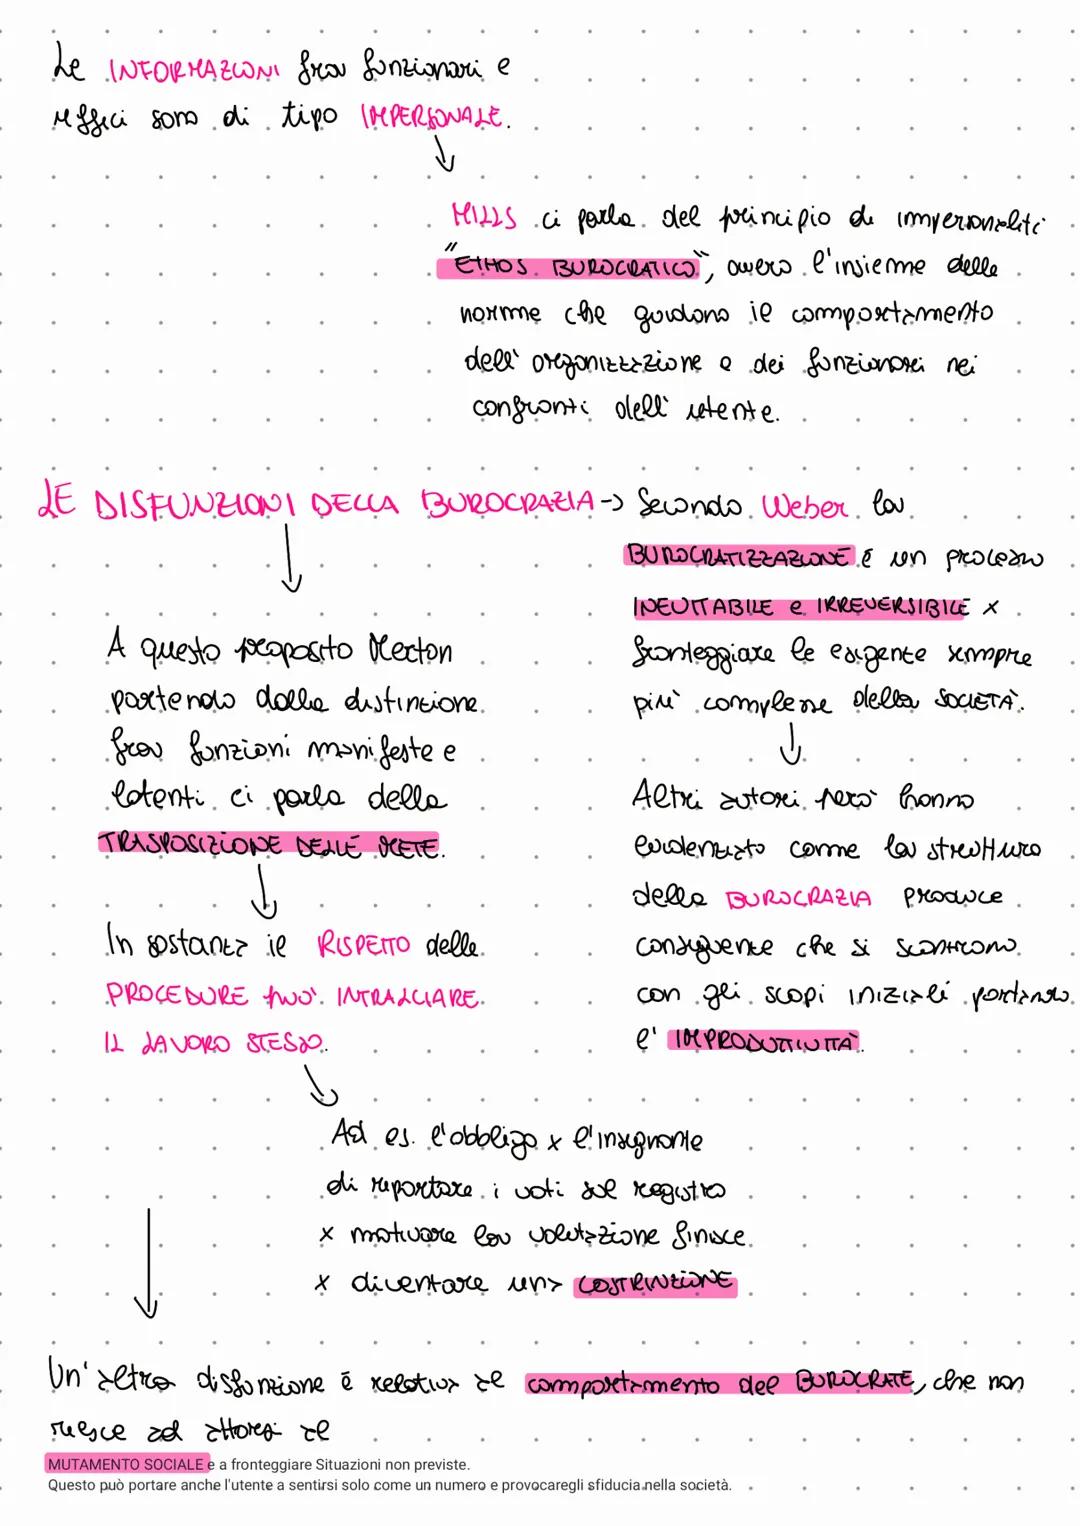 Le INFORMAZIONI fra funzionari e
uffici sono di tipo IMPERSONALE.
MILLS ci parla del principio di impersonalità
"ETHOS BUROCRATICO", ovvero l'insieme delle
norme che guidano il comportamento
dell'organizzazione e dei funzionari nei
confronti dell'utente.
LE DISFUNZIONI DELLA BUROCRAZIA → Secondo Weber la
BUROCRATIZZAZIONE è un processo
INEVITABILE e IRREVERSIBILE x
fronteggiare le esigenze sempre
più complesse della SOCIETÀ.
A questo proposito Merton
partendo dalla distinzione
fra funzioni manifeste e
latenti ci parla della
TRASPOSIZIONE DELLE METE.
In sostanza il RISPETTO delle
PROCEDURE può INTRALCIARE
IL LAVORO STESSO.
Altri autori però hanno
evidenziato come la struttura
della BUROCRAZIA produce
conseguenze che si scontrano
con gli scopi iniziali portando
l'IMPRODUTTIVITÀ.
Ad es. l'obbligo x l'insegnante
di riportare i voti sul registro
x motivare la valutazione finisce
x diventare una COSTRINZIONE
Un'altra disfunzione è relativa al comportamento del BUROCRATE, che non
riesce ad al
MUTAMENTO SOCIALE e a fronteggiare Situazioni non previste.
Questo può portare anche l'utente a sentirsi solo come un numero e provocaregli sfiducia nella società.